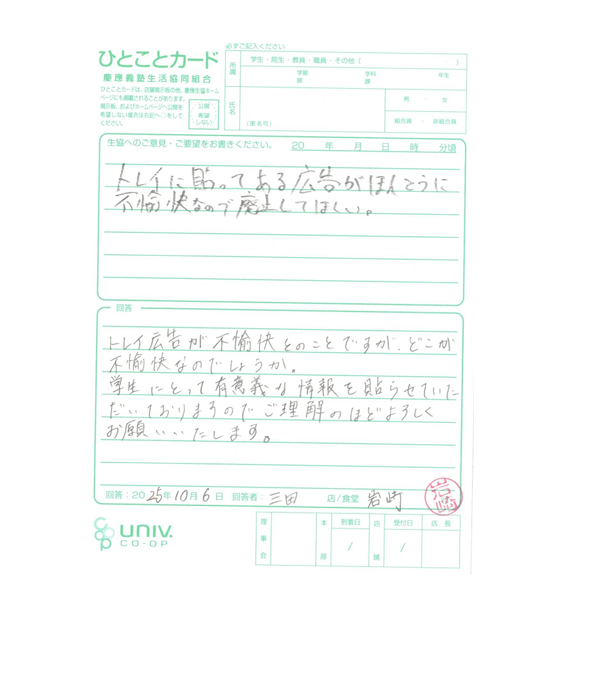 必ずご記入ください
ひとことカード
慶應義塾生活協同組合
ひとことカードは、店舗掲示板の他、慶應生協ホーム
ページにも掲載されることがあります。
掲示板、およびホームページへ公開を
希望しない場合は右記へ○をして
ください。
公開
希望
しない
所属
学生・院生・教員・職員・その他（　　）
学部 学科 年生
課
氏名
（匿名可）
男 ・ 女
組合員 ・ 非組合員
生協へのご意見・ご要望をお書きください。 20 年 月 日 時 分頃
トレイに貼ってある広告がほんとうに
不愉快なので廃止してほしい。
回答
トレイ広告が不愉快とのことですが、どこが
不愉快なのでしょうか。
学生にとって有意義な情報を貼らせていた
だいておりますのでご理解のほどよろしく
お願いいたします。
回答：2025年10月6日 回答者：三田 店/食堂 岩崎
岩崎
coop UNIV.
CO-OP
理事会
本部
到着日
/
店舗
受付日
/
店長